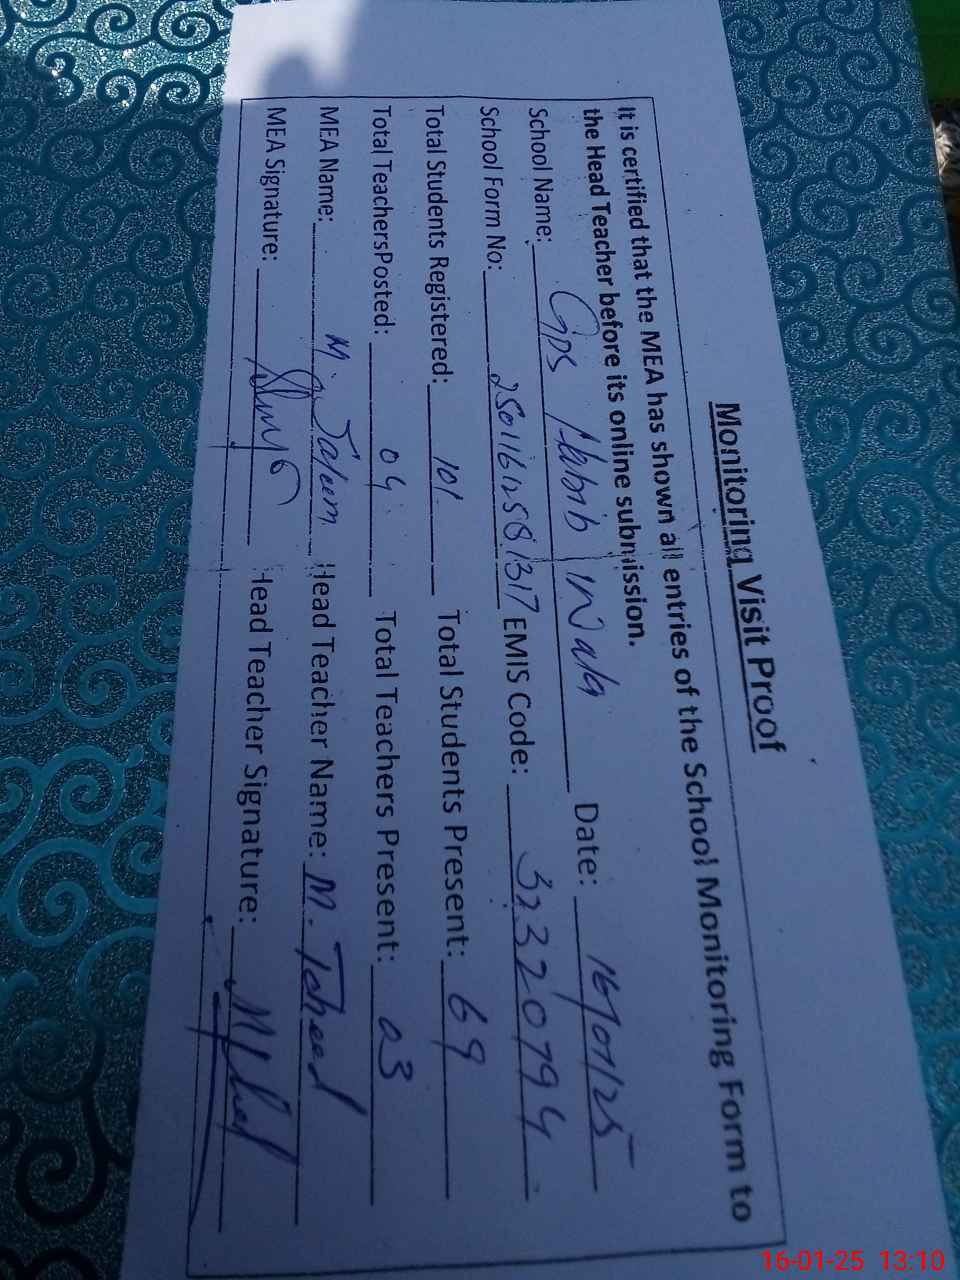 Monitoring Visit Proof
It is certified that the MEA has shown all entries of the School Monitoring Form to
the Head Teacher before its online submission.
School Name: GPS Habib Wala Date: 16/01/25
School Form No: EMIS Code: 32320794
Total Students Registered: 101 Total Students Present: 69
Total TeachersPosted: 04 Total Teachers Present: 03
MEA Name: M. Head Teacher Name: M.
MEA Signature: Head Teacher Signature:
16-01-25 13:10